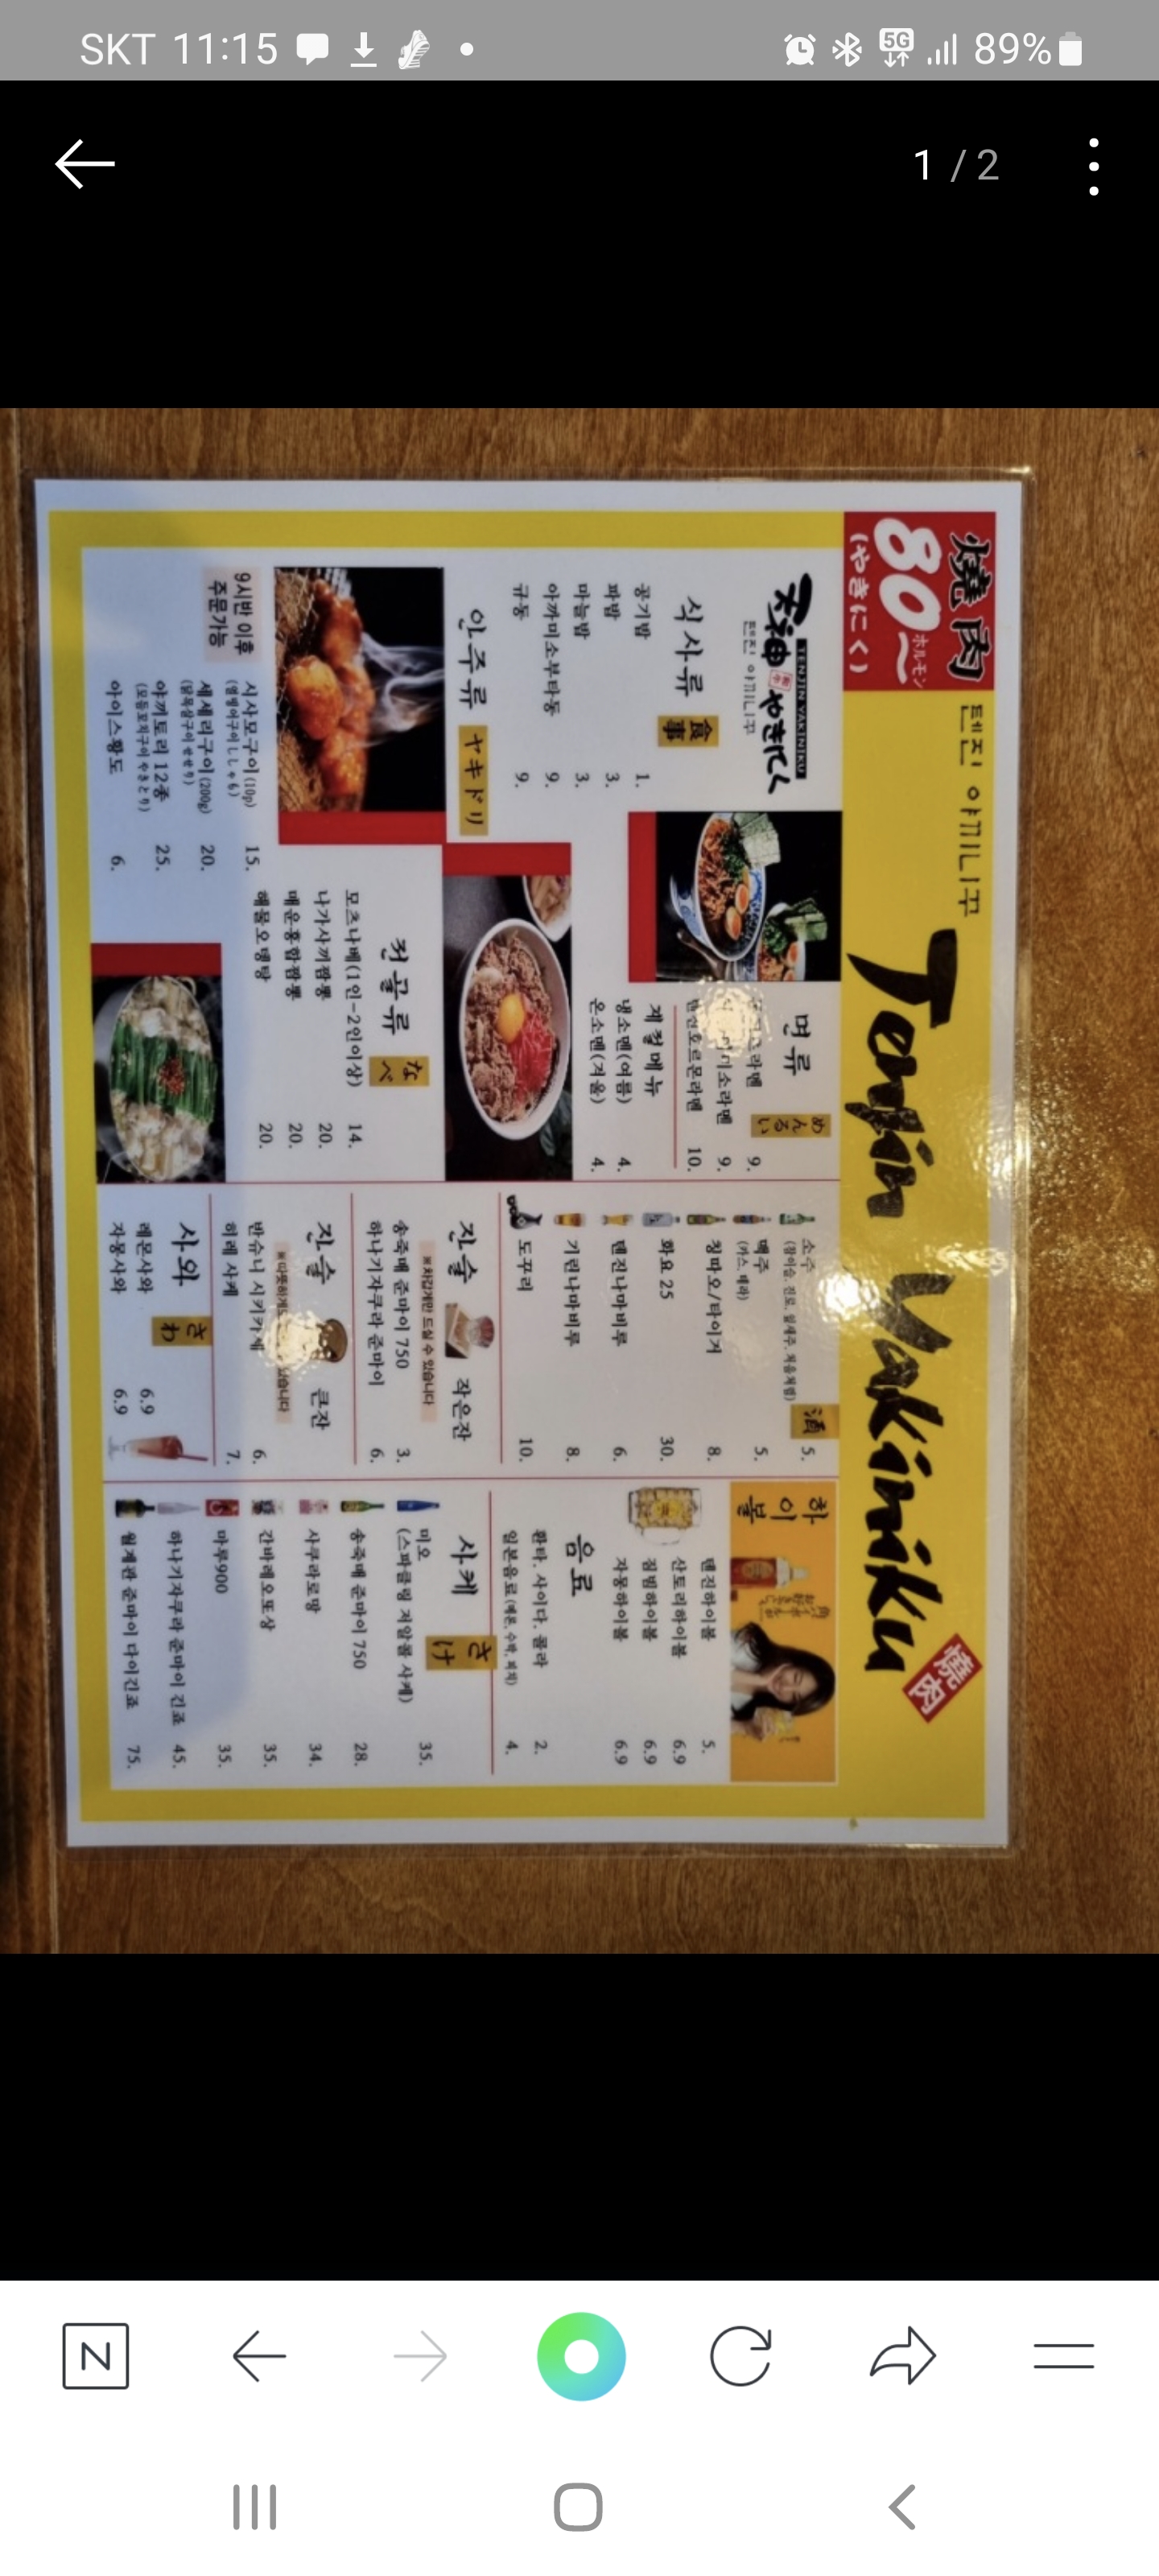 SKT 11:15
5G
89%
1 / 2
燒肉
80~
ホルモン
(やきにく)
텐진 야끼니꾸
Tenjin Yakiniku
燒肉
天神 やきにく
TENJIN YAKINIKU
텐진 야끼니꾸
식사류 食事
공기밥 1.
파밥 3.
마늘밥 3.
아까미소부타동 9.
규동 9.
면류 めんるい
라멘 9.
미소라멘 9.
호르몬라멘 10.
계절메뉴
냉소멘(여름) 4.
온소멘(겨울) 4.
안주류 ヤキドリ
9시반 이후
주문가능
시사모구이 (10p) 15.
(열빙어구이 ししゃも)
세세리구이 (200g) 20.
(닭목살구이 せせり)
야끼토리 12종 25.
(모듬꼬치구이 やきとり)
아이스황도 6.
전골류 なべ
모츠나베(1인-2인이상) 14.
나가사끼짬뽕 20.
매운홍합짬뽕 20.
해물오뎅탕 20.
酒
소주 5.
(참이슬, 진로, 잎새주, 처음처럼)
맥주 5.
(카스, 테라)
칭따오/타이거 8.
화요 25 30.
텐진나마비루 6.
기린나마비루 8.
도꾸리 10.
잔술 작은잔
※차갑게만 드실 수 있습니다
송죽매 준마이 750 3.
하나기자쿠라 준마이 6.
잔술 큰잔
※따뜻하게도 있습니다
반슈니 시키카제 6.
히레 사케 7.
사와 さわ
레몬사와 6.9
자몽사와 6.9
하이볼
텐진하이볼 5.
산토리하이볼 6.9
짐빔하이볼 6.9
자몽하이볼 6.9
음료
환타, 사이다, 콜라 2.
일본음료(메론, 수박, 피치) 4.
사케 さけ
미오 35.
(스파클링 저알콜 사케)
송죽매 준마이 750 28.
사쿠라로망 34.
간바레오또상 35.
마루900 35.
하나기자쿠라 준마이 긴죠 45.
월계관 준마이 다이긴죠 75.
N